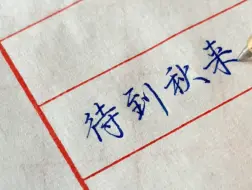 待到秋来